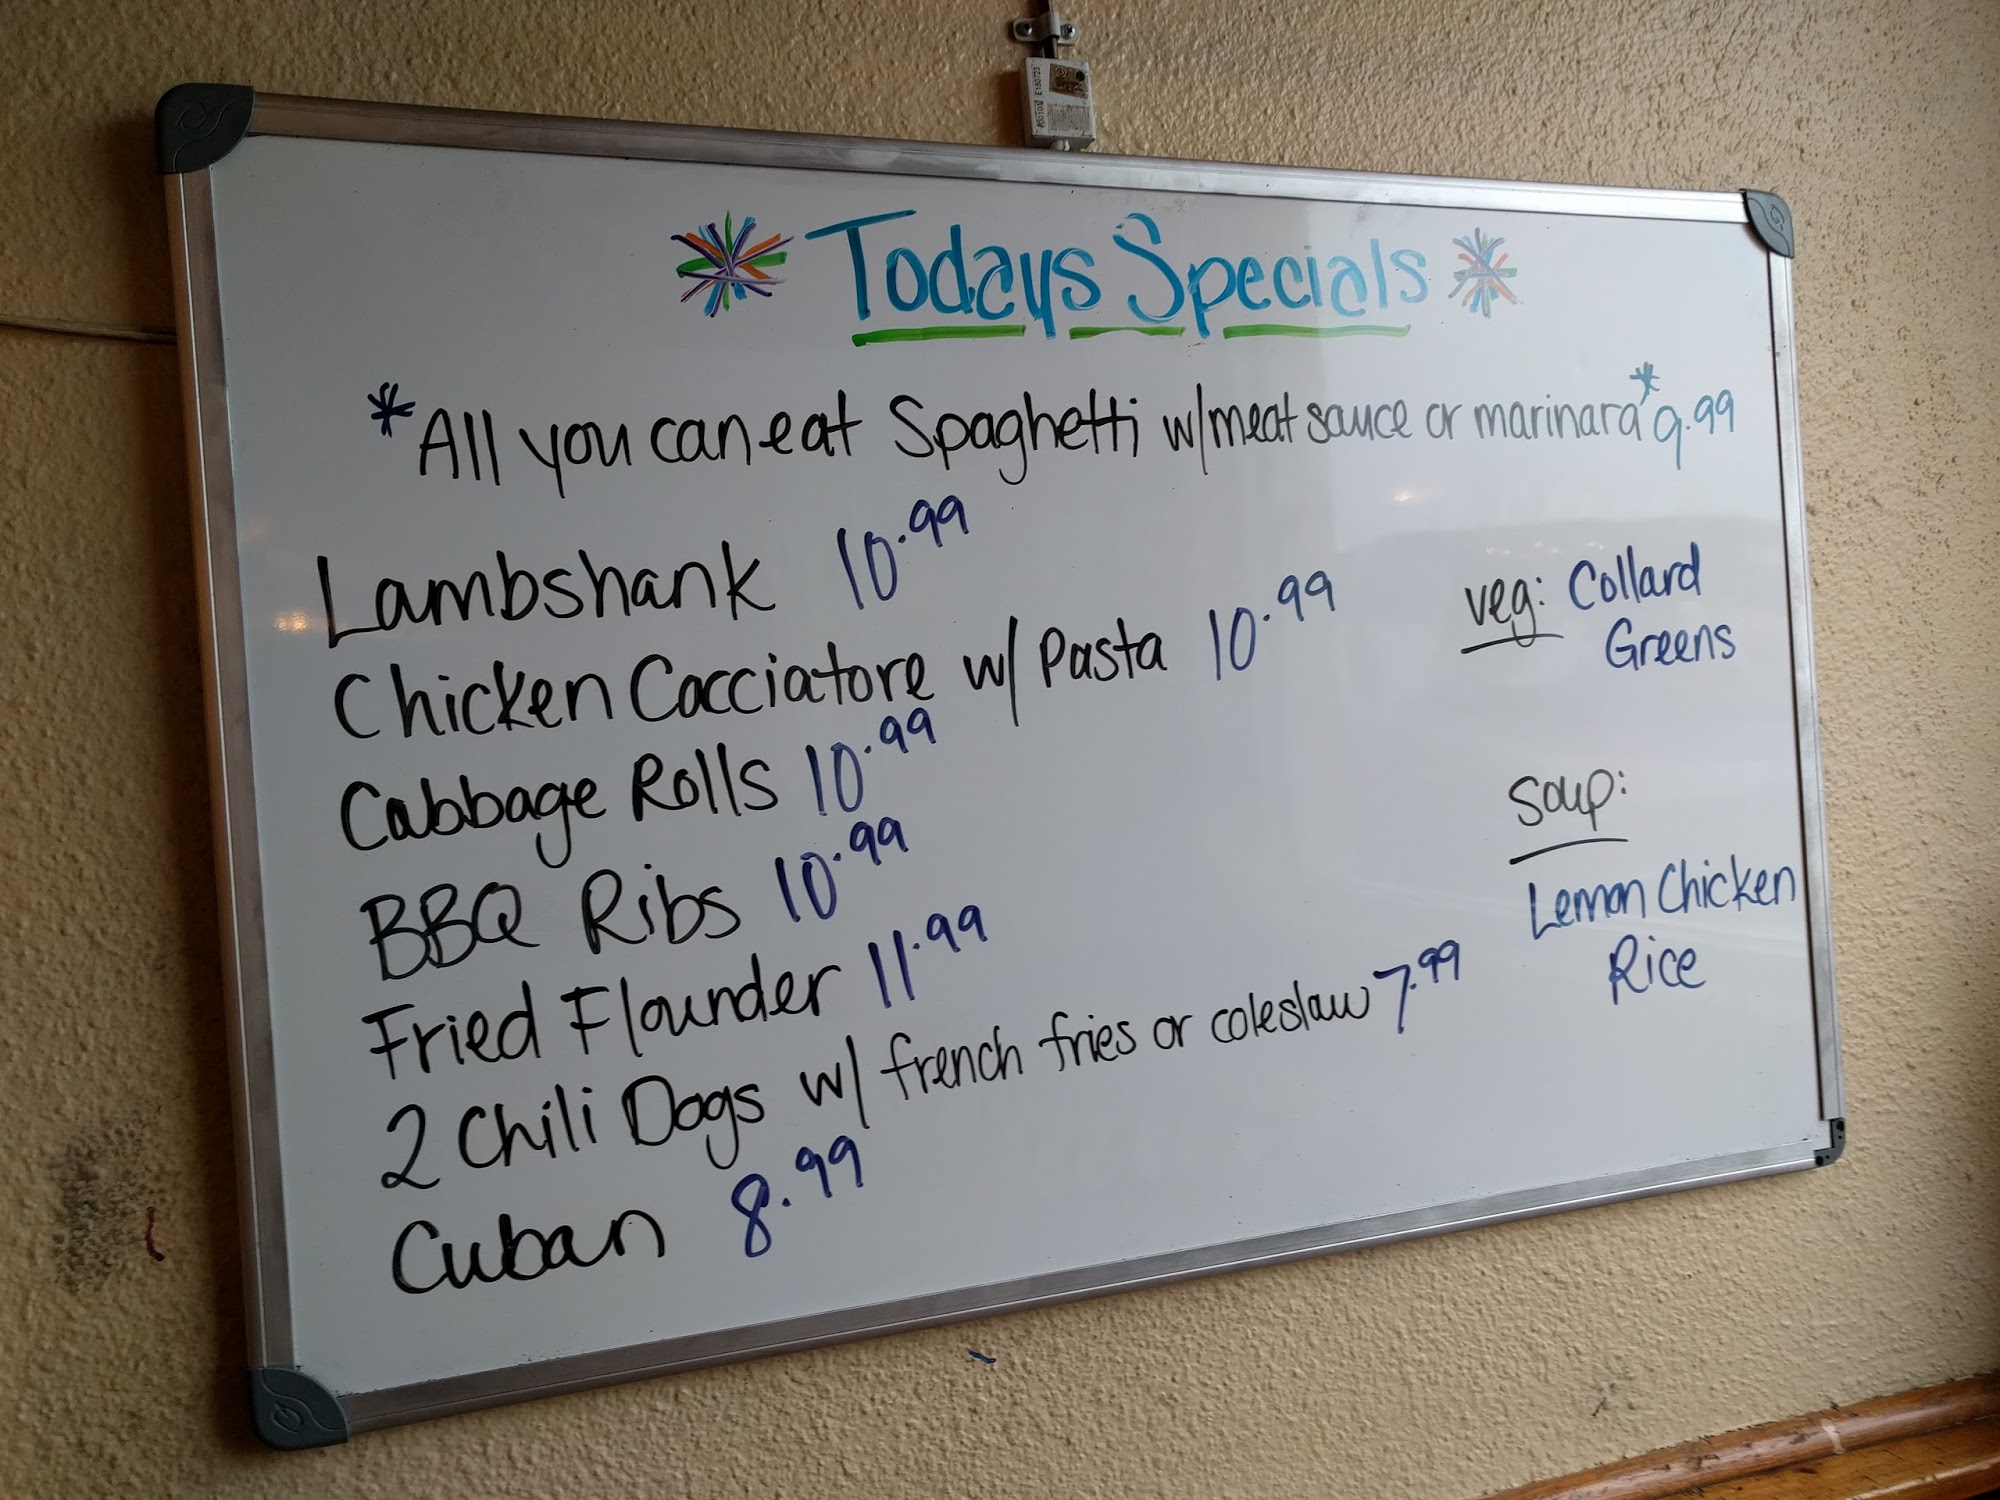 Todays Specials
*All you can eat Spaghetti w/meat sauce or marinara* 9.99
Lambshank 10.99
Chicken Cacciatore w/ Pasta 10.99
Cabbage Rolls 10.99
BBQ Ribs 10.99
Fried Flounder 11.99
2 Chili Dogs w/ french fries or coleslaw 7.99
Cuban 8.99
veg: Collard
Greens
Soup:
Lemon Chicken
Rice
E180723